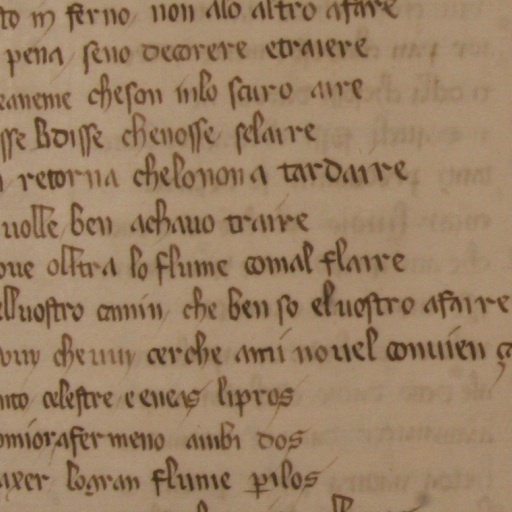 to in ferno non alo altro afare
pena seno decorere etraiere
eaneme cheson inlo scuro aire
sse bdisse chenosse selaire
retorna chelonon a tardaire
volle ben achauo traire
oue olltra lo flume comal flaire
elluostro camin che ben so eluostro afaire
che cerche ami nouel conuien
nto celestre e lipros
omiorafer meno ambi dos
lo gran flume perilos